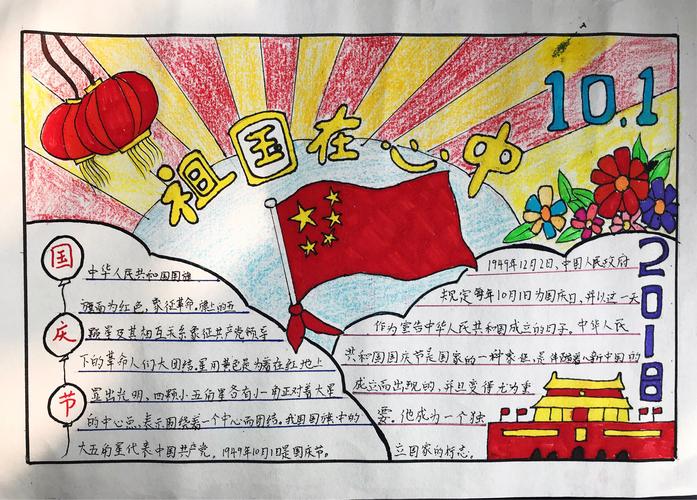 祖国在心中
10.1
2018
国
庆
节
中华人民共和国国旗
旗面为红色,象征革命,旗上的五
颗星及其相互关系象征共产党领导
下的革命人们大团结,星用黄色是为着在红地上
显出光明,四颗小五角星各有一小角正对着大星
的中心点,表示围绕着一个中心而团结。我国国旗中的
大五角星代表中国共产党。1949年10月1日是国庆节。
1949年12月2日,中国人民政府
规定每年10月1日为国庆日,并以这一天
作为宣告中华人民共和国成立的日子。中华人民
共和国国庆节是国家的一种象征,是伴随着新中国的
成立而出现的,并且变得尤为重
要。他成为一个独
立国家的标志。